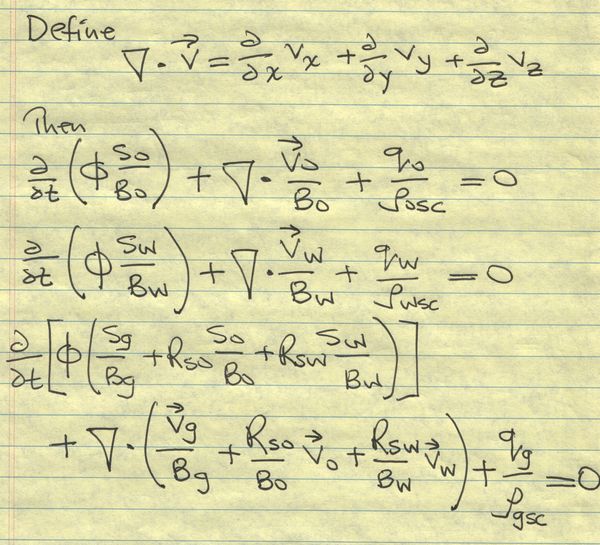 Define
∇·V⃗ = ∂/∂x Vx + ∂/∂y Vy + ∂/∂z Vz
Then
∂/∂t (ϕ So/Bo) + ∇· V⃗o/Bo + qo/ρosc = 0
∂/∂t (ϕ Sw/Bw) + ∇· V⃗w/Bw + qw/ρwsc = 0
∂/∂t [ϕ (Sg/Bg + Rso So/Bo + Rsw Sw/Bw)]
+ ∇· (V⃗g/Bg + Rso/Bo V⃗o + Rsw/Bw V⃗w) + qg/ρgsc = 0